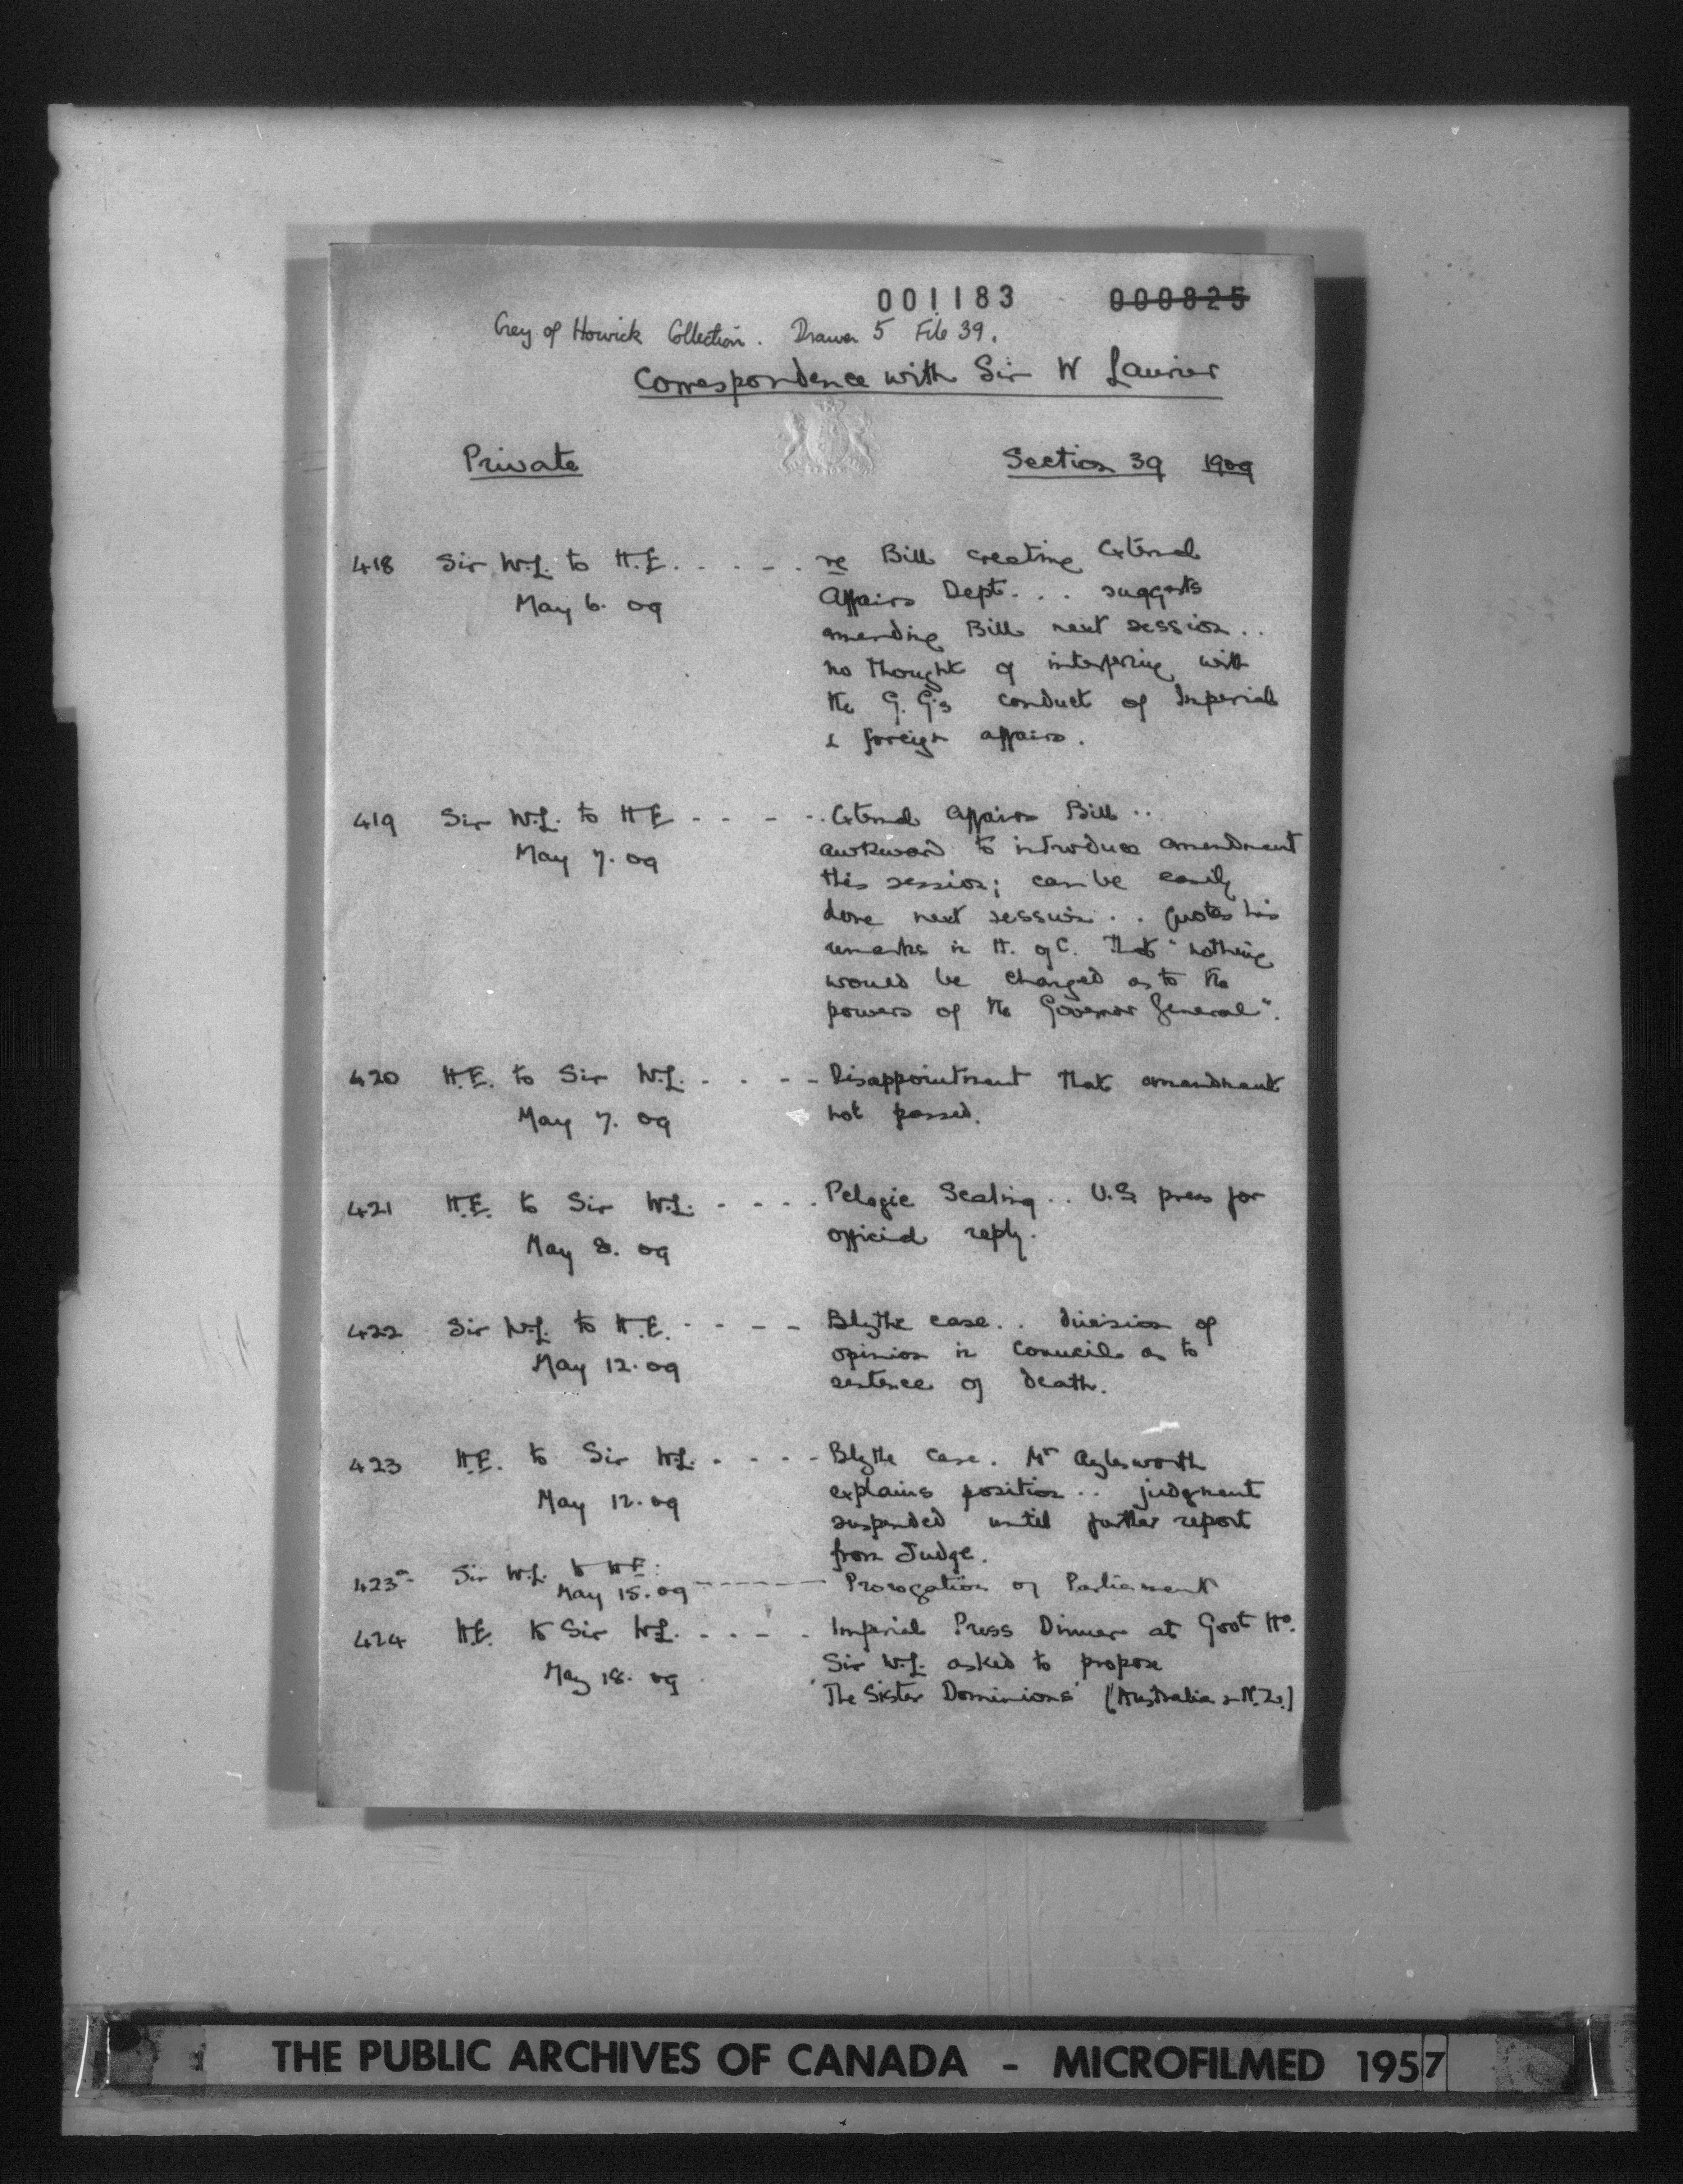 001183 000825
Grey of Howick Collection. Drawer 5 File 39.
Correspondence with Sir W Laurier
Private Section 39 1909
418 Sir W.L. to H.E. . . . - . re Bill creating External
May 6. 09 Affairs Dept. . . suggests
amending Bill next session . .
no thought of interfering with
the G. G's conduct of Imperial
& foreign affairs.
419 Sir W.L. to H E - - - - . External Affairs Bill . .
May 7. 09 awkward to introduce amendment
this session; can be easily
done next session . . Quotes his
remarks in H. of C. that "nothing
would be changed as to the
powers of the Governor General".
420 H.E. to Sir W.L. - - - - Disappointment that amendment
May 7. 09 not passed.
421 H.E. to Sir W.L. - - - - Pelagic Sealing . . U.S. press for
May 8. 09 official reply.
422 Sir W.L. to H.E. - - - - Blythe case . . division of
May 12. 09 opinion in Council as to
sentence of death.
423 H.E. to Sir W.L. - - - - Blythe case. Mr Aylesworth
May 12. 09 explains position . . judgment
suspended until further report
from Judge.
423a Sir W.L. to H.E.
May 15. 09 ------ Prorogation of Parliament
424 H.E. to Sir W.L. - - - . Imperial Press Dinner at Govt Ho.
May 18. 09 Sir W.L. asked to propose
'The Sister Dominions' (Australia & N.Z.)
THE PUBLIC ARCHIVES OF CANADA - MICROFILMED 1957